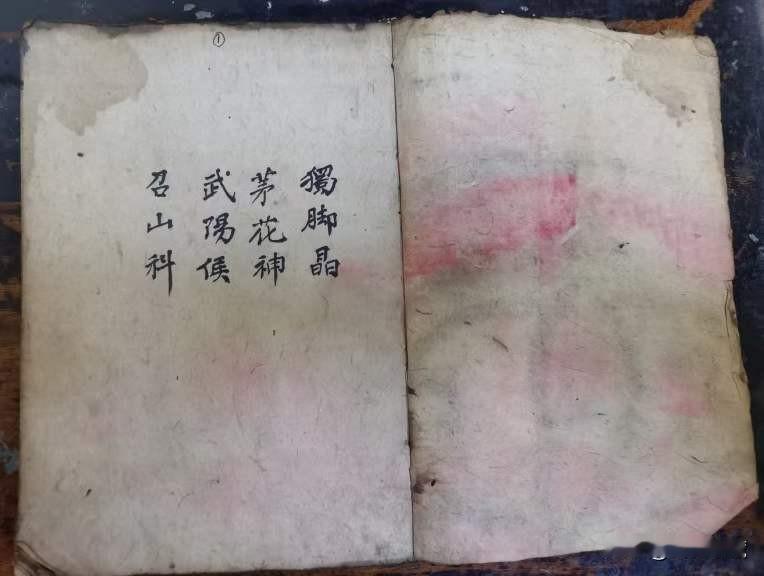 ①
獨脚晶
茅花神
武陽侯
召山科